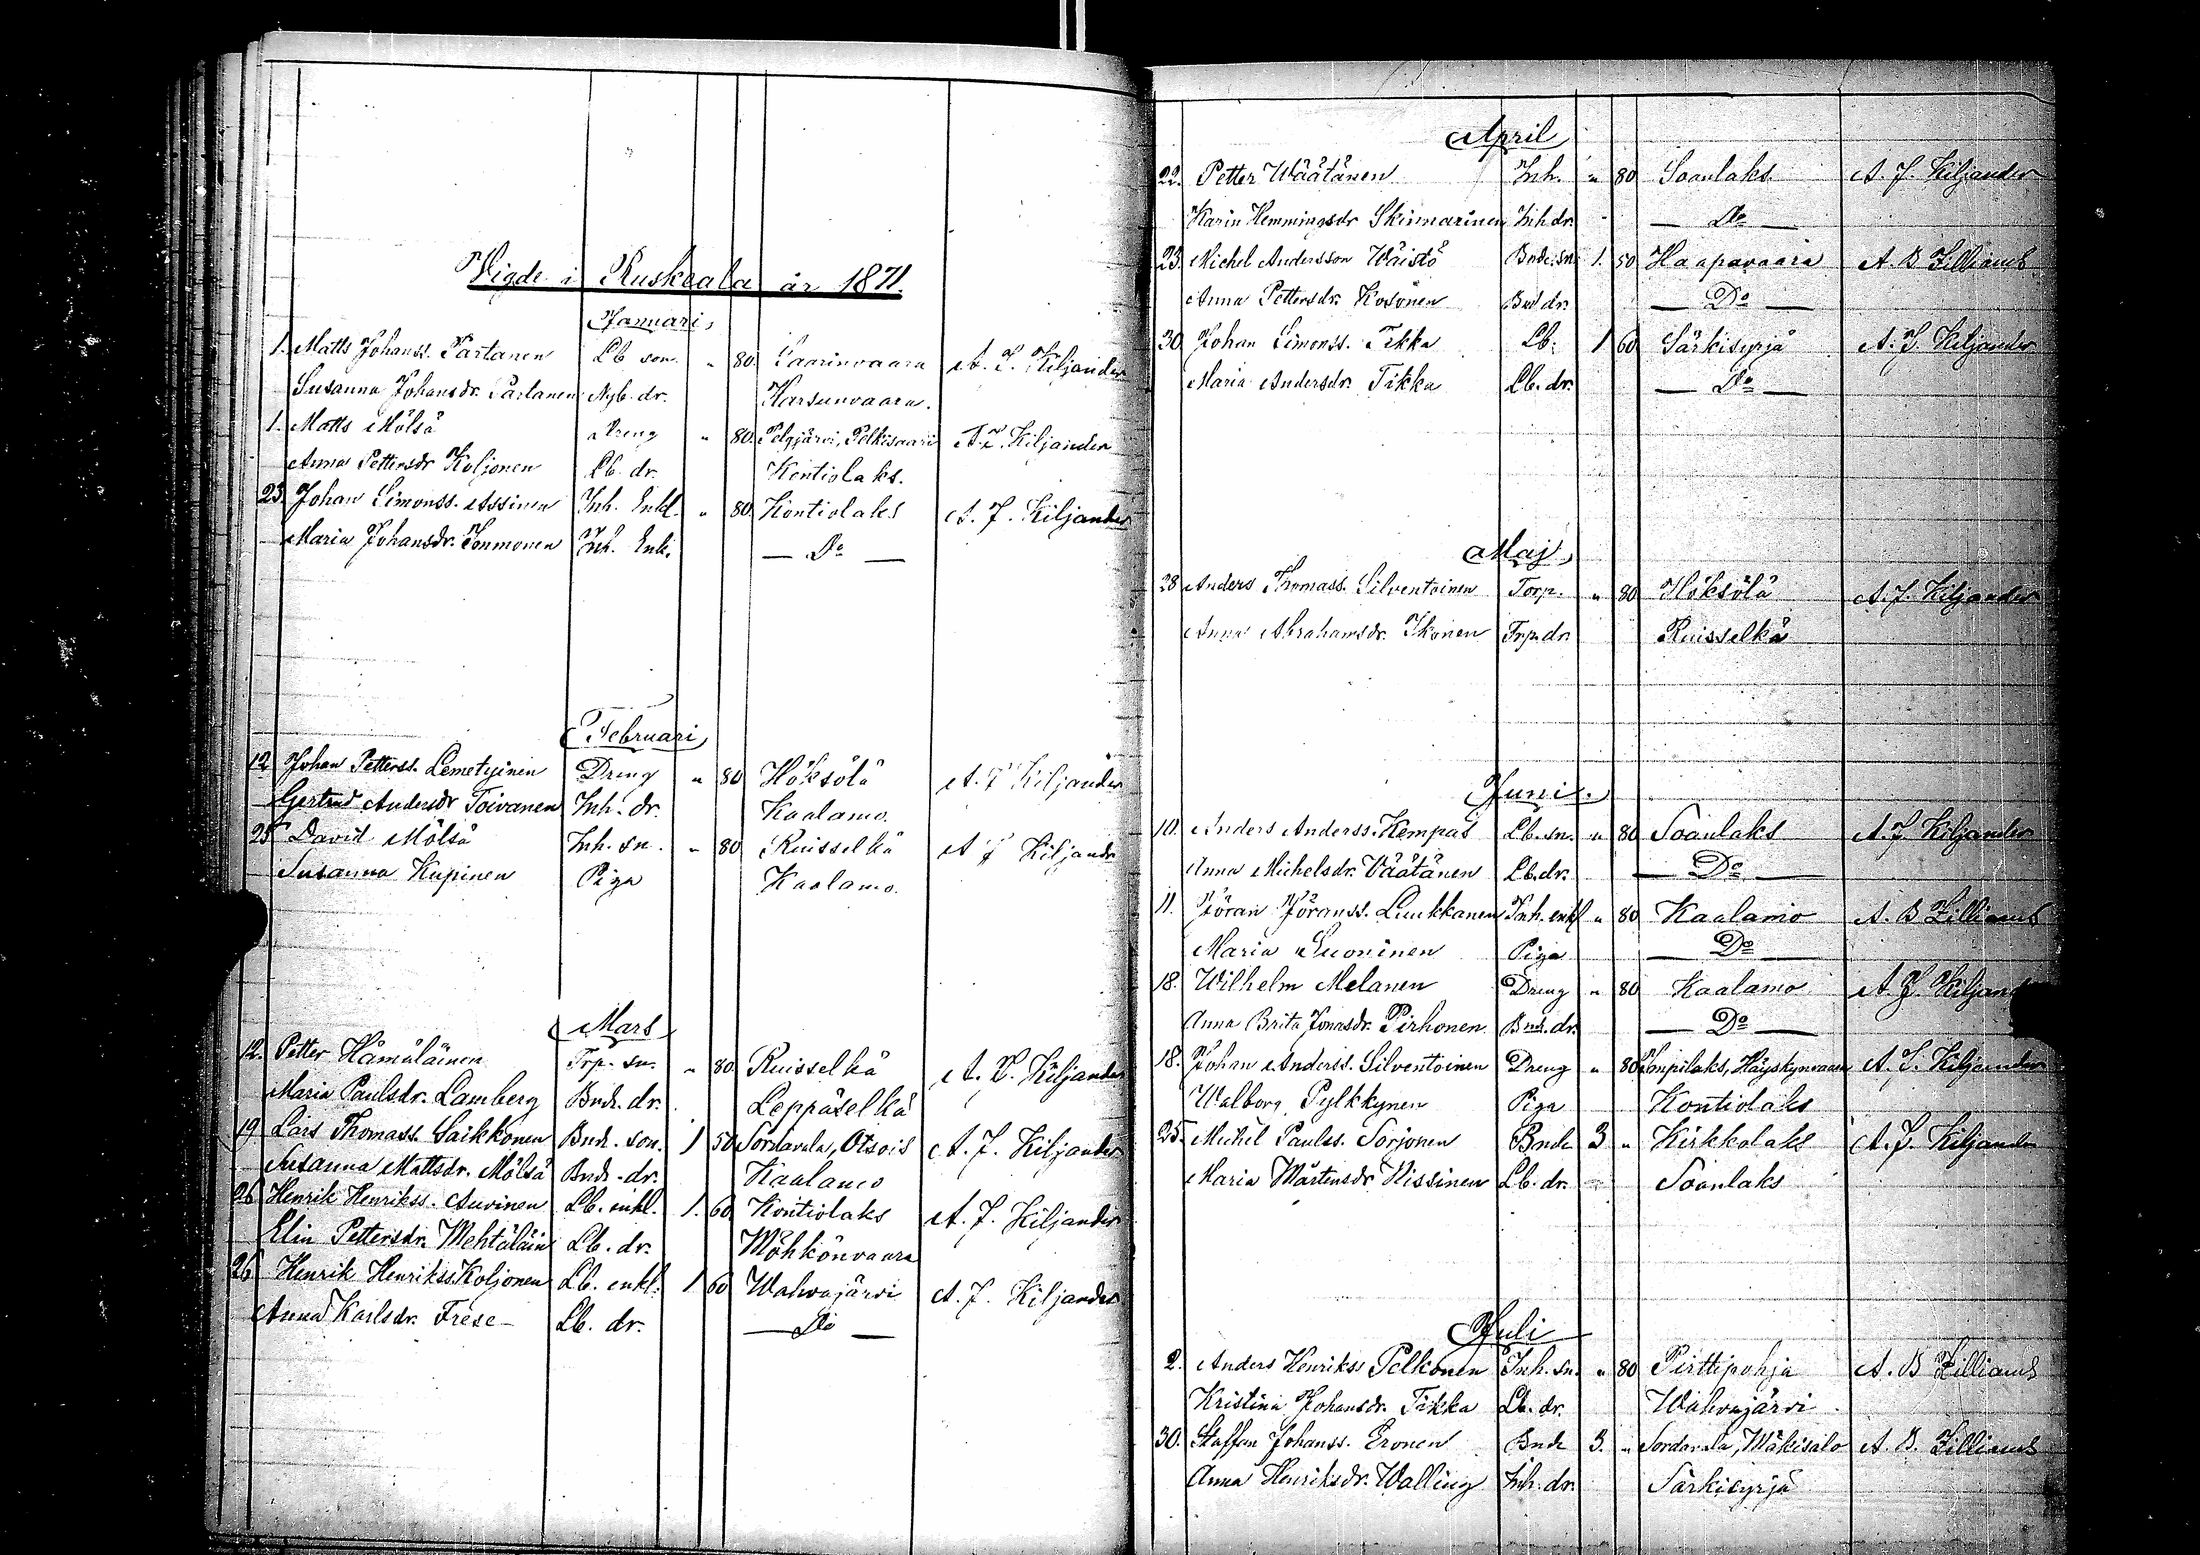 Vigde i Ruskeala år 1871.
Januari
1. Matts Johanss. Partanen Lb son. " 80. Saarinvaara A. F. Kiljander
Susanna Johansdr. Partanen Nyb. dr. Harsunvaara.
1. Matts Mölsä Dreng " 80. Pelgjärvi, Pelkisaari A. F. Kiljander
Anna Pettersdr Koljonen Lb. dr. Kontiolaks.
23 Johan Simonss. Assinen Inh. Enkl. " 80. Kontiolaks A. F. Kiljander
Maria Johansdr. Tonmonen Inh. Enk. — Do —
Februari
12 Johan Petterss. Lemetyinen Dreng " 80 Höksölä A. F Kiljander
Gertrud Andersdr Toivanen Inh. dr. Kaalamo.
25 David Mölsä Inh. sn. " 80 Ruisselkä A F Kiljander
Susanna Kupinen Piga Kaalamo.
Mars
12. Petter Hämäläinen Trp. sn. " 80. Ruisselkä A. F. Kiljander
Maria Paulsdr. Lamberg Bnd. dr. Leppäselkä
19 Lars Thomass. Saikkonen Bnd. son. 1 50 Sordavala, Otsois A. F. Kiljander
Susanna Mattsdr. Mölsä Bnd. dr. Kaalamo
26 Henrik Henrikss. Auvinen Lb. enkl. 1. 60 Kontiolaks A. F. Kiljander
Elin Pettersdr. Mehtäläin Lb. dr. Möhkönvaara
26 Henrik Henrikss. Koljonen Lb. enkl. 1 60 Wahvajärvi A. F. Kiljander
Anna Karlsdr. Frese Lb. dr. — Do —
April
22. Petter Wäätänen Inh. " 80 Soanlaks A. F. Kiljander
Karin Hemmingsdr Skinnarinen Inh dr. — Do —
23. Michel Andersson Wäistö Bnde. sn. 1. 50 Haapavaara A. B Zilliacus
Anna Pettersdr. Kosonen Bnd dr. — Do —
30. Johan Simonss. Tikka Lb. 1 60 Särkisyrjä A. F. Kiljander
Maria Andersdr. Tikka Lb. dr. — Do —
Maj
28 Anders Thomass. Silventoinen Torp. " 80 Höksölä A. F. Kiljander
Anna Abrahamsdr. Ikonen Trp. dr. Ruisselkä
Juni
10. Anders Anderss. Kempas Lb. sn. " 80 Soanlaks A. F. Kiljander
Anna Michelsdr. Väätänen Lb. dr. — Do —
11. Jöran Jöranss. Luukkanen Inh. enkl " 80 Kaalamo A. B Zilliacus
Maria Suoninen Piga — Do —
18. Wilhelm Melanen Dreng " 80 Kaalamo A. F. Kiljand
Anna Brita Jonasdr. Pirhonen Bnd. dr. — Do —
18. Johan Anderss. Silventoinen Dreng " 80 Impilaks, Häyskynvaara A. F. Kiljander
Walborg Pylkkynen Piga Kontiolaks
25. Michel Paulss. Sorjonen Bnde 3 " Kirkkolaks A. F. Kiljander
Maria Mårtensdr Nissinen Lb. dr. Soanlaks
Juli
2. Anders Henrikss Pelkonen Inh. sn. " 80 Pirttipohja A. B Zilliacus
Kristina Johansdr. Tikka Lb. dr. Wahvajärvi
30. Staffan Johanss. Eronen Bnde 3. " Sordavala, Mäkisalo A. B. Zilliacus
Anna Henriksdr. Walling Inh. dr. Särkisyrjä